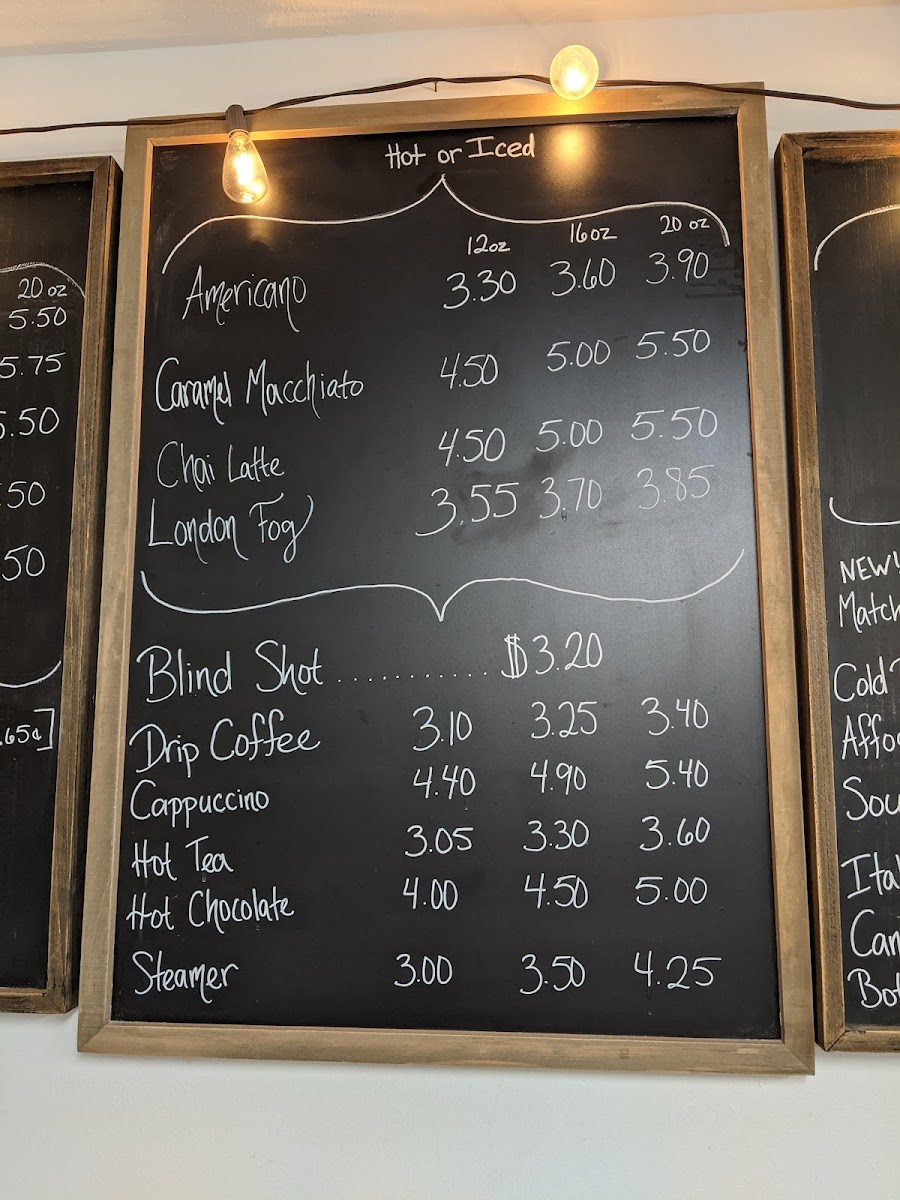 20 oz
5.50
5.75
5.50
.50
.50
.65¢]
Hot or Iced
12oz 16oz 20 oz
Americano 3.30 3.60 3.90
Caramel Macchiato 4.50 5.00 5.50
Chai Latte 4.50 5.00 5.50
London Fog 3.55 3.70 3.85
Blind Shot .............. $3.20
Drip Coffee 3.10 3.25 3.40
Cappuccino 4.40 4.90 5.40
Hot Tea 3.05 3.30 3.60
Hot Chocolate 4.00 4.50 5.00
Steamer 3.00 3.50 4.25
NEW!
Match
Cold
Affo
Sou
Ital
Can
Bot